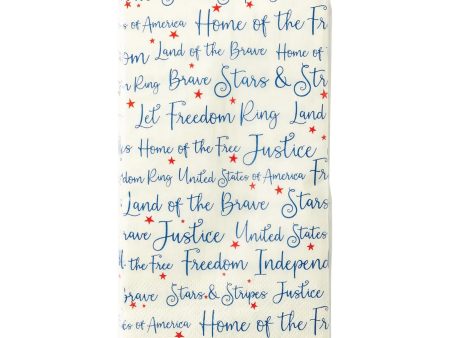 Stars & Stripes Justice
s of America Home of the Fr
om Land of the Brave Home of
r Ring Brave Stars & Str
Let Freedom Ring Land
s Home of the Free Justice
dom Ring United States of America Fr
Land of the Brave Stars
rave Justice United States
the Free Freedom Independ
brave Stars & Stripes Justice
es of America Home of the Fr